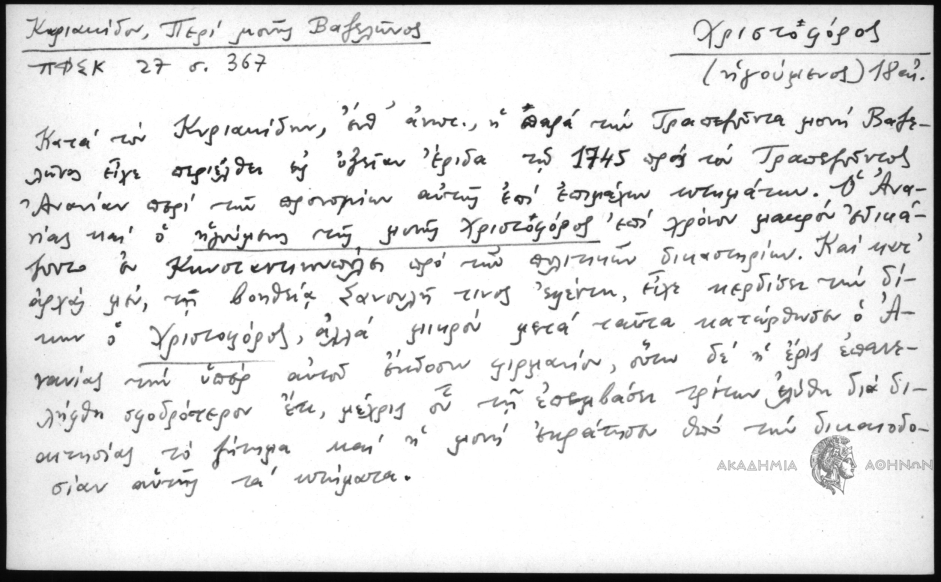 Κυριακίδου, Περί μονῆς Βαζελῶνος
ΠΦΣΚ 27 σ. 367
Χριστόφορος
(ἡγούμενος) 18 αἰ.
Κατά τόν Κυριακίδην, ἔνθ' ἀνωτ., ἡ παρά τήν Τραπεζοῦντα μονή Βαζε-
λῶνος εἶχε περιέλθει εἰς ὀξεῖαν ἔριδα τῷ 1745 πρός τόν Τραπεζοῦντος
Ἀνανίαν περί τῶν προνομίων αὐτῆς ἐπί ἐπιμάχων κτημάτων. Ὁ Ἀνα-
νίας καί ὁ ἡγούμενος τῆς μονῆς Χριστόφορος ἐπί χρόνον μακρόν ἐδικά-
ζοντο ἐν Κωνσταντινουπόλει πρό τῶν πολιτικῶν δικαστηρίων. Καί κατ'
ἀρχάς μέν, τῇ βοηθείᾳ Σανουλῆ τινος ἐφέντη, εἶχε κερδίσει τήν δί-
κην ὁ Χριστόφορος, ἀλλά μικρόν μετά ταῦτα κατώρθωσεν ὁ Ἀ-
νανίας τήν ὑπέρ αὐτοῦ ἔκδοσιν φιρμανίου, οὕτω δέ ἡ ἔρις ἐπανε-
λήφθη σφοδρότερον ἔτι, μέχρις οὗ τῇ ἐπεμβάσει τρίτων ἐλύθη διά δι-
αιτησίας τό ζήτημα καί ἡ μονή ἐκράτησεν ὑπό τήν δικαιοδο-
σίαν αὐτῆς τά κτήματα.
ΑΚΑΔΗΜΙΑ ΑΘΗΝΩΝ